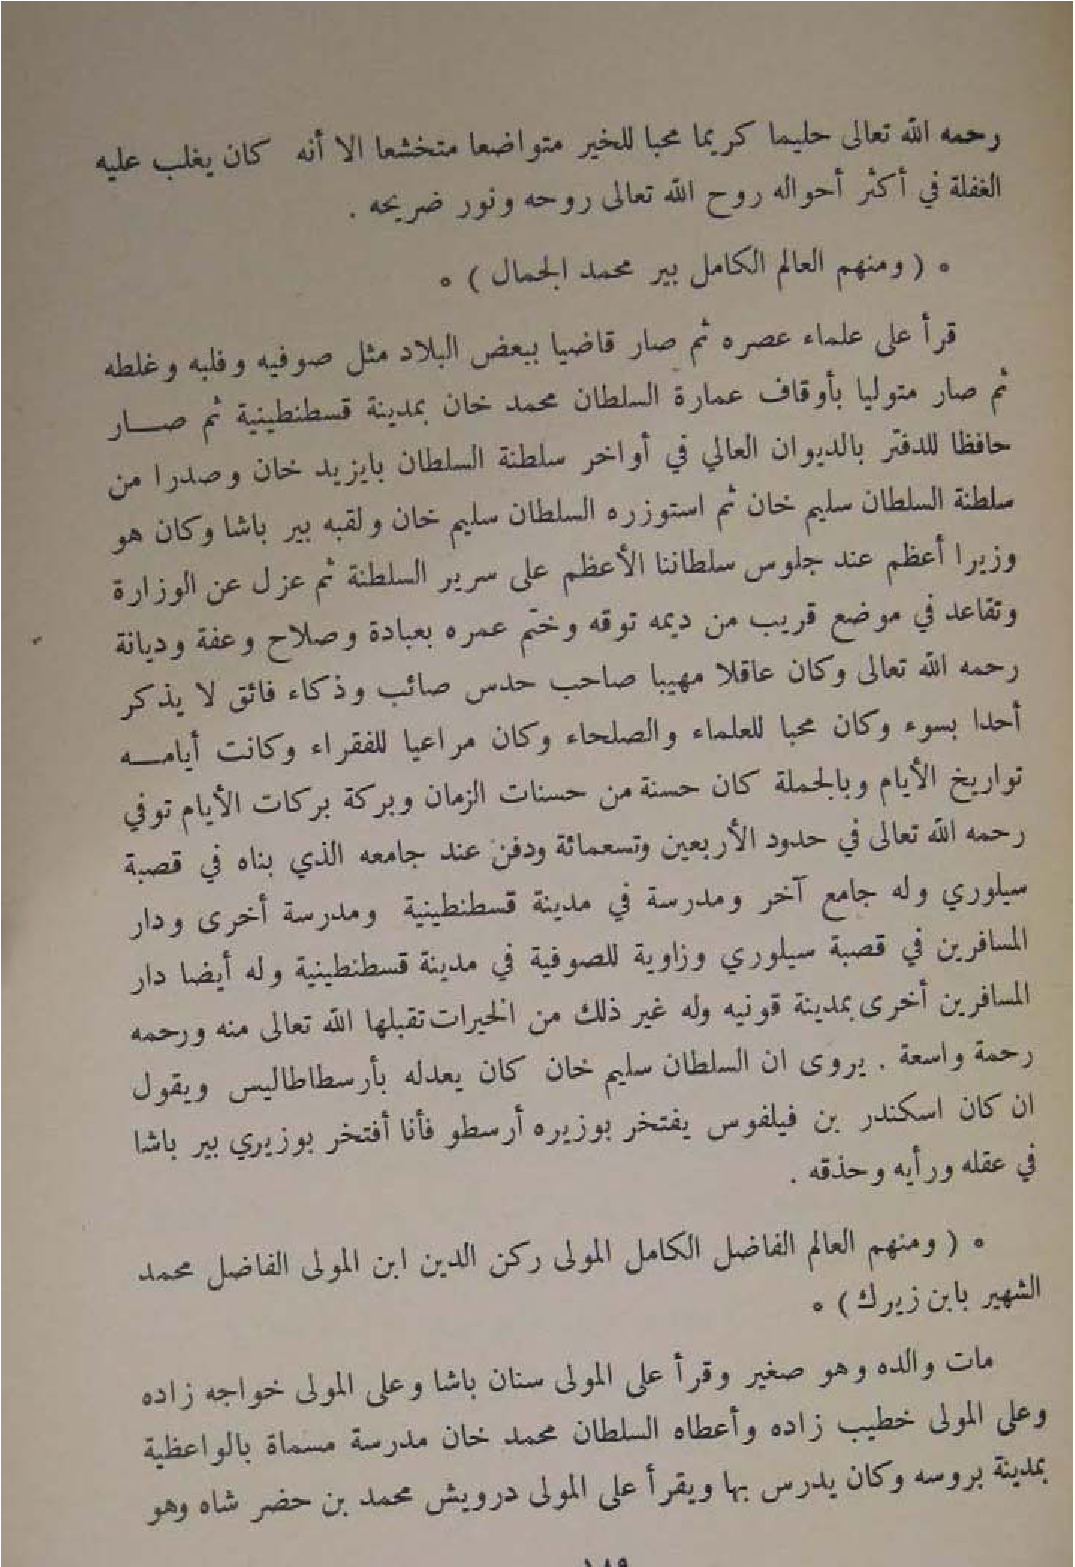 رحمه الله تعالى حليما كريما محبا للخير متواضعا متخشعا الا أنه كان يغلب عليه
الغفلة في أكثر أحواله روح الله تعالى روحه ونور ضريحه .
* ( ومنهم العالم الكامل بير محمد الجمال ) *
قرأ على علماء عصره ثم صار قاضيا ببعض البلاد مثل صوفيه وفلبه وغلطه
ثم صار متوليا بأوقاف عمارة السلطان محمد خان بمدينة قسطنطينية ثم صـــار
حافظا للدفتر بالديوان العالي في أواخر سلطنة السلطان بايزيد خان وصدرا من
سلطنة السلطان سليم خان ثم استوزره السلطان سليم خان ولقبه بير باشا وكان هو
وزيرا أعظم عند جلوس سلطاننا الأعظم على سرير السلطنة ثم عزل عن الوزارة
وتقاعد في موضع قريب من ديمه توقه وختم عمره بعبادة وصلاح وعفة وديانة
رحمه الله تعالى وكان عاقلا مهيبا صاحب حدس صائب وذكاء فائق لا يذكر
أحدا بسوء وكان محبا للعلماء والصلحاء وكان مراعيا للفقراء وكانت أيامـــه
تواريخ الأيام وبالجملة كان حسنة من حسنات الزمان وبركة بركات الأيام توفي
رحمه الله تعالى في حدود الأربعين وتسعمائة ودفن عند جامعه الذي بناه في قصبة
سيلوري وله جامع آخر ومدرسة في مدينة قسطنطينية ومدرسة أخرى ودار
المسافرين في قصبة سيلوري وزاوية للصوفية في مدينة قسطنطينية وله أيضا دار
المسافرين أخرى بمدينة قونيه وله غير ذلك من الخيرات تقبلها الله تعالى منه ورحمه
رحمة واسعة . يروى ان السلطان سليم خان كان يعدله بأرسطاطاليس ويقول
ان كان اسكندر بن فيلفوس يفتخر بوزيره أرسطو فأنا أفتخر بوزيري بير باشا
في عقله ورأيه وحذقه .
* ( ومنهم العالم الفاضل الكامل المولى ركن الدين ابن المولى الفاضل محمد
الشهير بابن زيرك ) *
مات والده وهو صغير وقرأ على المولى سنان باشا وعلى المولى خواجه زاده
وعلى المولى خطيب زاده وأعطاه السلطان محمد خان مدرسة مسماة بالواعظية
بمدينة بروسه وكان يدرس بها ويقرأ على المولى درويش محمد بن حضر شاه وهو
١٨٩